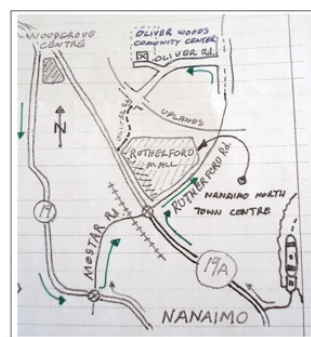 WOODGROVE
CENTRE
OLIVER WOODS
COMUNITY CENTER
OLIVER Rd.
N
UPLANDS
RUTHERFORD
MALL
RUTHERFORD Rd.
NANAIMO NORTH
TOWN CENTRE
19
MOSTAR Rd
19A
NANAIMO